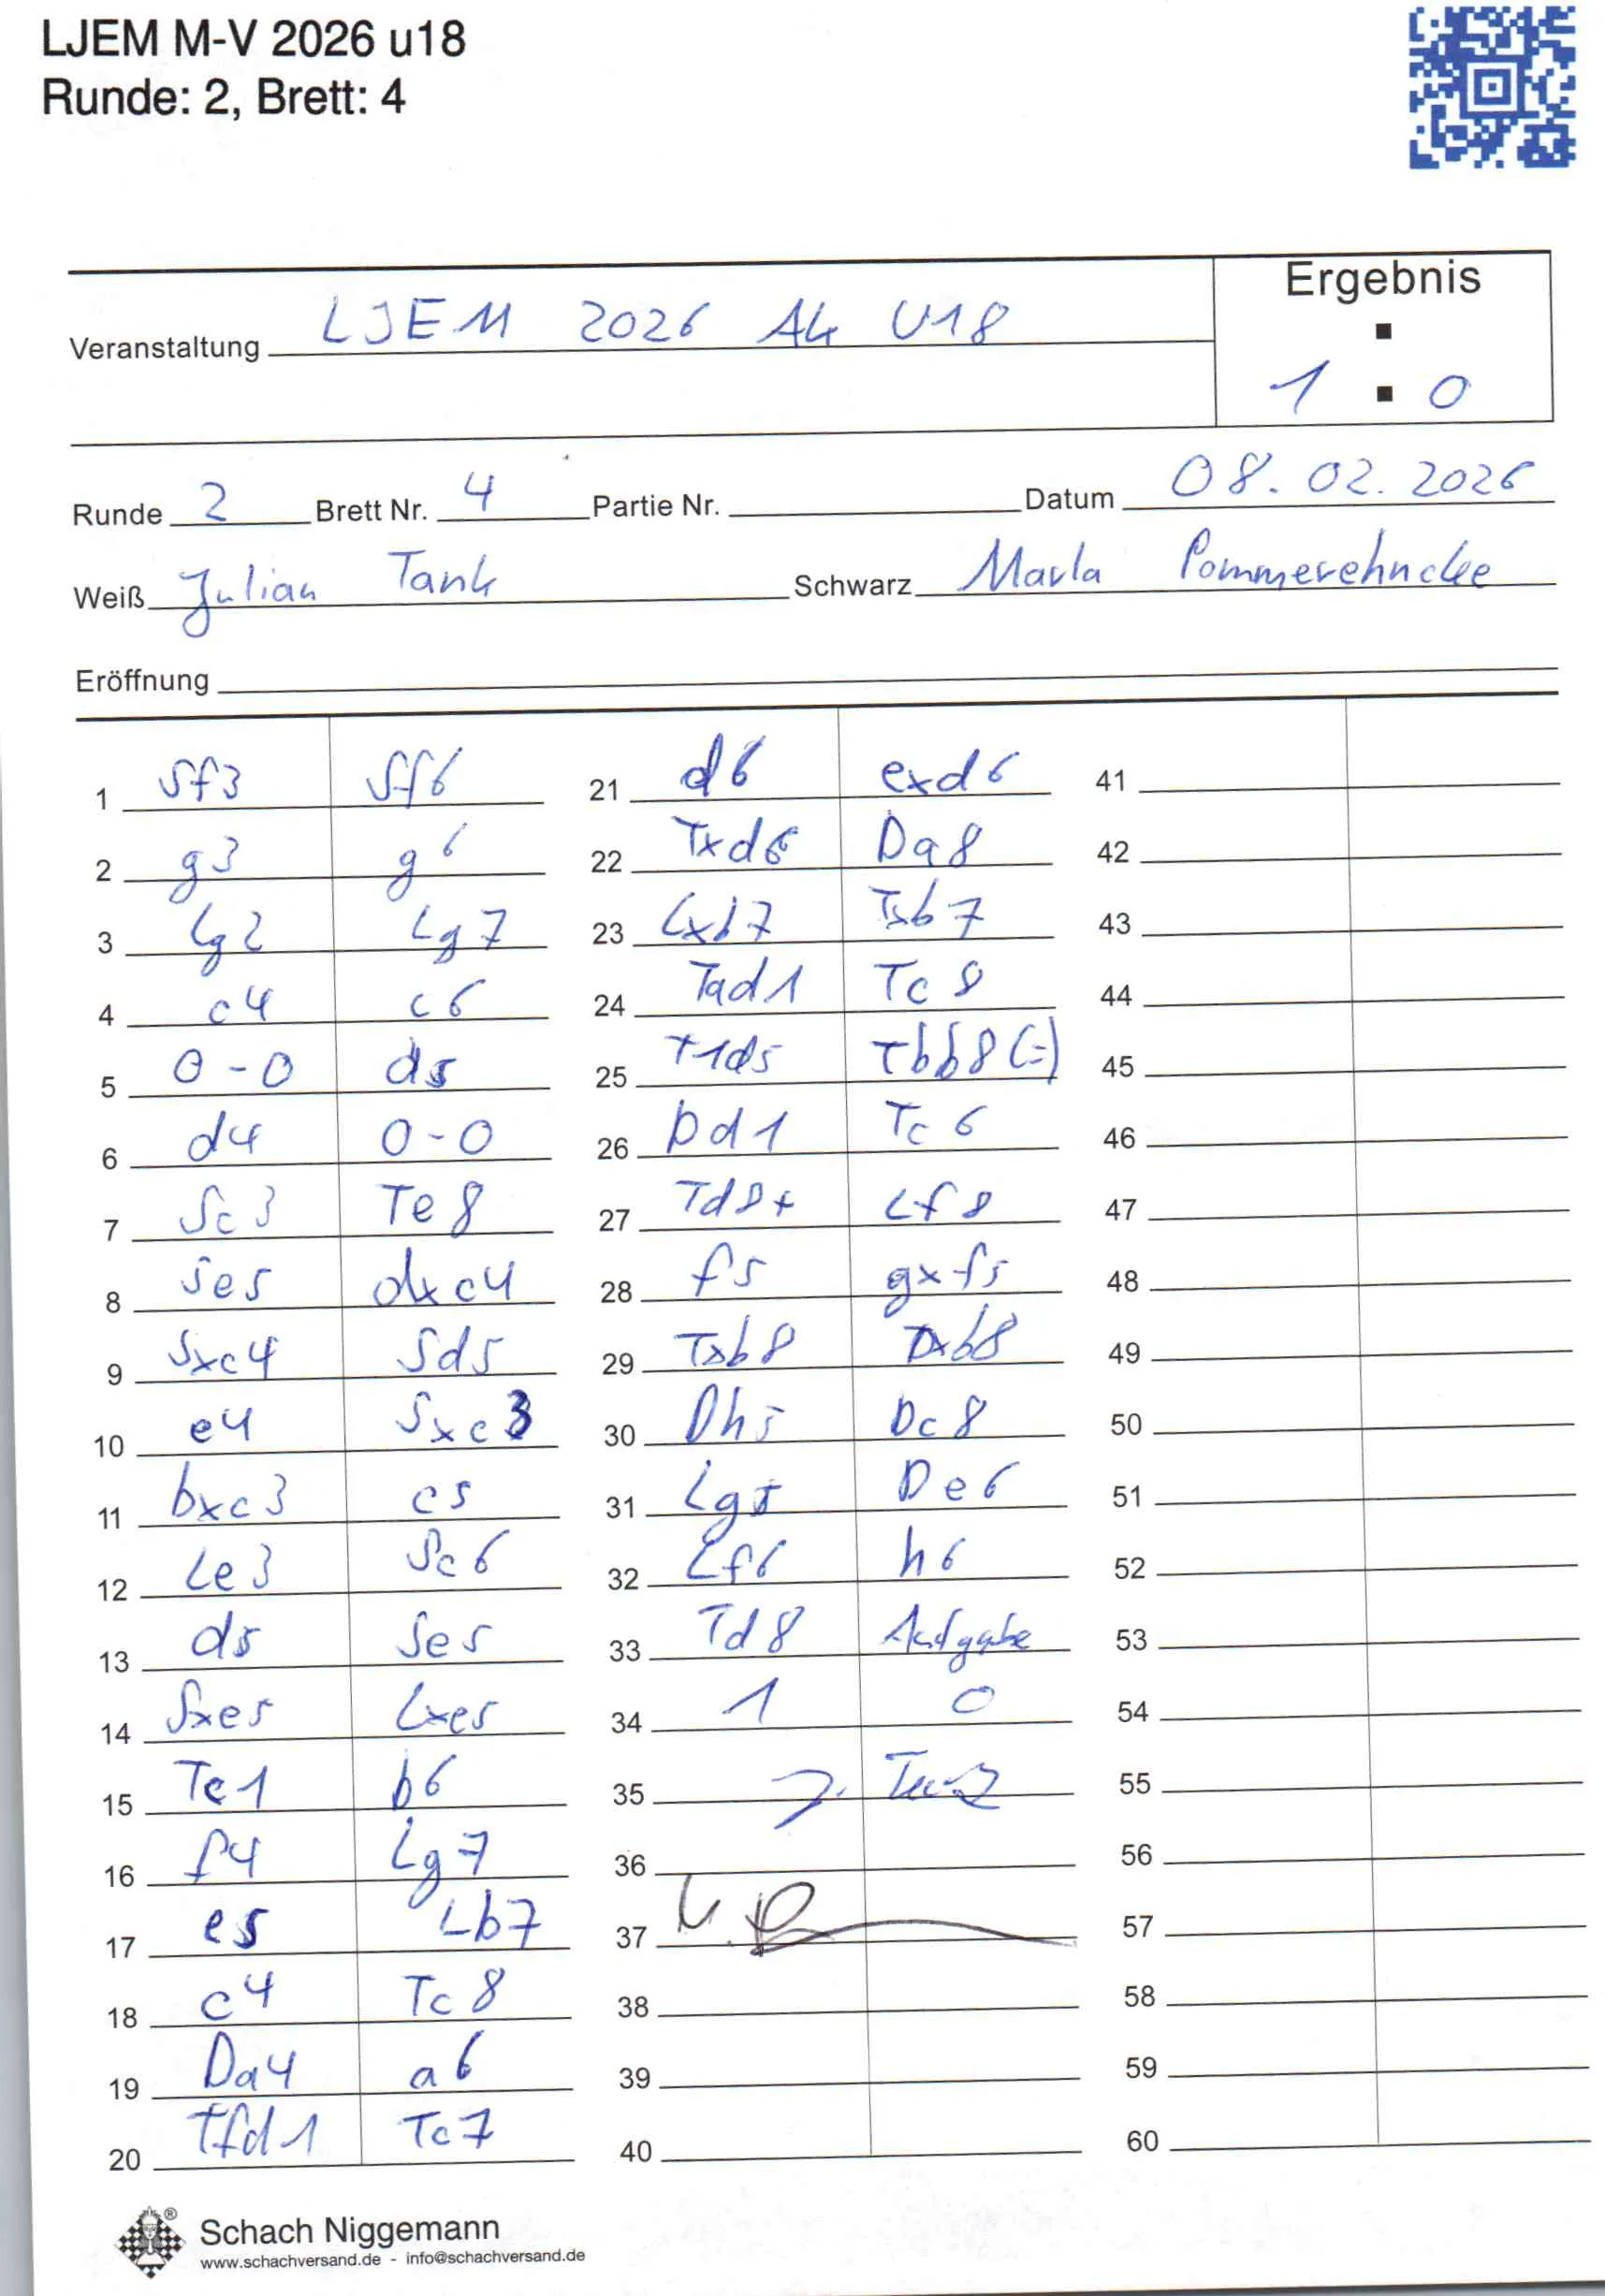 LJEM M-V 2026 u18
Runde: 2, Brett: 4
Ergebnis
Veranstaltung LJEM 2026 AK U18
1 : 0
Runde 2 Brett Nr. 4 Partie Nr. Datum 08.02.2026
Weiß Julian Tank Schwarz Marla Pommerehncke
Eröffnung
1 Sf3 Sf6
2 g3 g6
3 Lg2 Lg7
4 c4 c6
5 0-0 d5
6 d4 0-0
7 Sc3 Te8
8 Se5 dxc4
9 Sxc4 Sd5
10 e4 Sxc3
11 bxc3 c5
12 Le3 Sc6
13 d5 Se5
14 Sxe5 Lxe5
15 Tc1 b6
16 f4 Lg7
17 e5 Lb7
18 c4 Tc8
19 Da4 a6
20 Tfd1 Tc7
21 d6 exd6
22 Txd6 Da8
23 Lxb7 Txb7
24 Tad1 Tc8
25 T1d5 Tbb8 (=)
26 Dd1 Tc6
27 Td8+ Lf8
28 f5 gxf5
29 Txb8 Dxb8
30 Dh5 Dc8
31 Lg5 De6
32 Lf6 h6
33 Td8 Aufgabe
34 1 0
35
36
37
38
39
40
41
42
43
44
45
46
47
48
49
50
51
52
53
54
55
56
57
58
59
60
Schach Niggemann
www.schachversand.de - info@schachversand.de